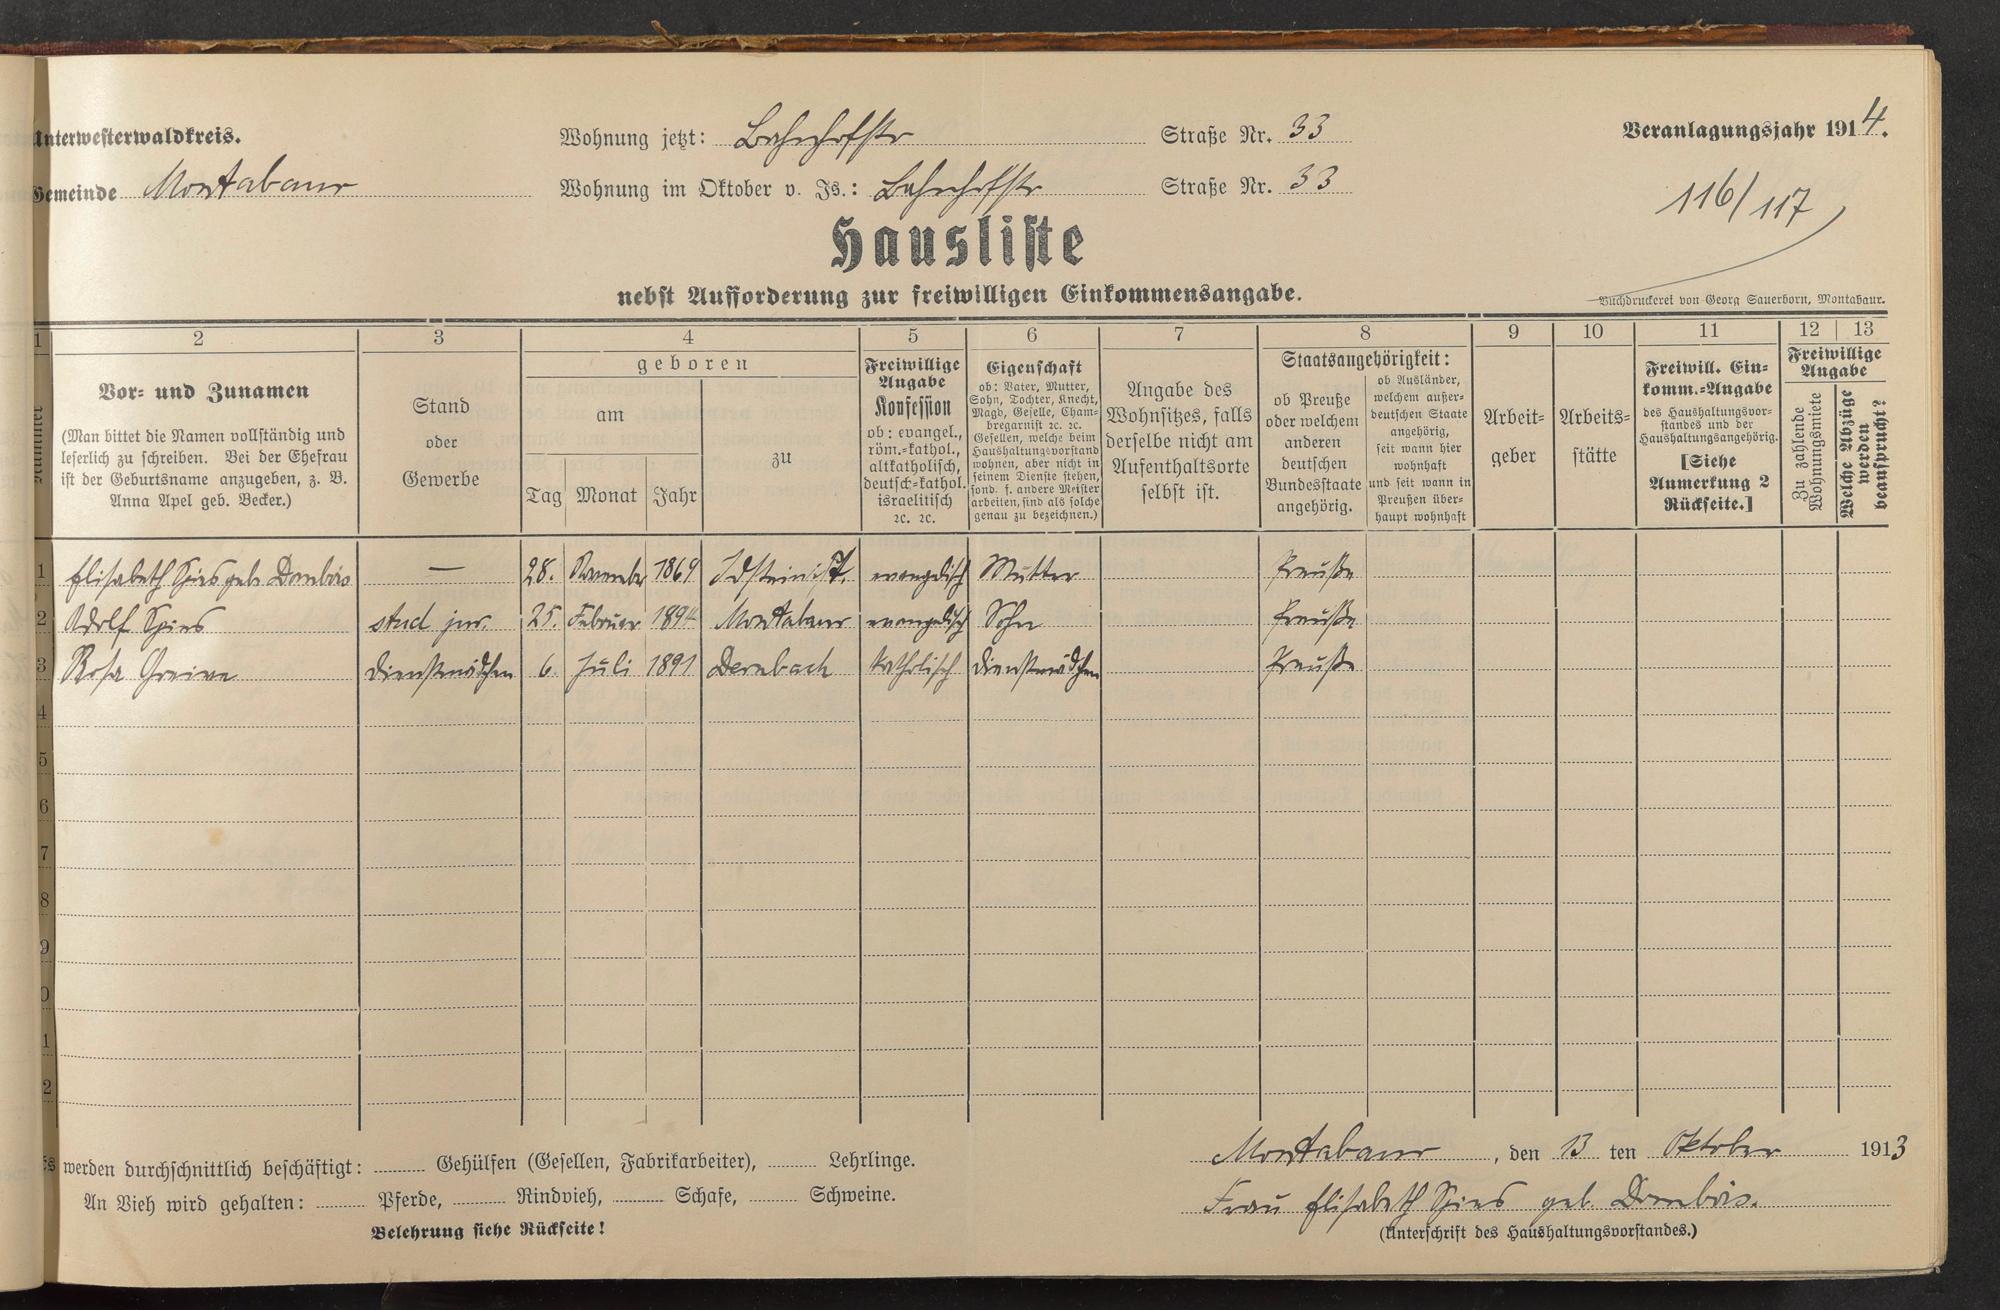 Unterwesterwaldkreis.
Gemeinde Montabaur
Wohnung jetzt: Bahnhofstr Straße Nr. 33
Wohnung im Oktober v. Js.: Bahnhofstr Straße Nr. 33
Veranlagungsjahr 1914.
116/117
Hausliste
nebst Aufforderung zur freiwilligen Einkommensangabe.
Buchdruckerei von Georg Sauerborn, Montabaur.
1 2 3 4 5 6 7 8 9 10 11 12 13
Nummer
Vor- und Zunamen
(Man bittet die Namen vollständig und
leserlich zu schreiben. Bei der Ehefrau
ist der Geburtsname anzugeben, z. B.
Anna Apel geb. Becker.)
Stand
oder
Gewerbe
geboren
am
Tag Monat Jahr
zu
Freiwillige
Angabe
Konfession
ob: evangel.,
röm.-kathol.,
altkatholisch,
deutsch-kathol.
israelitisch
ꝛc. ꝛc.
Eigenschaft
ob: Vater, Mutter,
Sohn, Tochter, Knecht,
Magd, Geselle, Cham-
bregarnist ꝛc. ꝛc.
Gesellen, welche beim
Haushaltungsvorstand
wohnen, aber nicht in
seinem Dienste stehen,
sond. f. andere Meister
arbeiten, sind als solche
genau zu bezeichnen.)
Angabe des
Wohnsitzes, falls
derselbe nicht am
Aufenthaltsorte
selbst ist.
Staatsangehörigkeit:
ob Preuße
oder welchem
anderen
deutschen
Bundesstaate
angehörig.
ob Ausländer,
welchem außer-
deutschen Staate
angehörig,
seit wann hier
wohnhaft
und seit wann in
Preußen über-
haupt wohnhaft
Arbeit-
geber
Arbeits-
stätte
Freiwill. Ein-
komm.-Angabe
des Haushaltungsvor-
standes und der
Haushaltungsangehörig.
[Siehe
Anmerkung 2
Rückseite.]
Freiwillige
Angabe
Zu zahlende
Wohnungsmiete
Welche Abzüge
werden
beansprucht?
1 Elisabeth Spies geb. Dombois — 28. November 1869 Idstein i. T. evangelisch Mutter Preuße
2 Adolf Spies stud jur. 25. Februar 1894 Montabaur evangelisch Sohn Preuße
3 Rosa Dienstmädchen 6. Juli 1891 Dernbach katholisch Dienstmädchen Preuße
4
5
6
7
8
9
0
1
2
Es werden durchschnittlich beschäftigt: Gehülfen (Gesellen, Fabrikarbeiter), Lehrlinge.
An Vieh wird gehalten: Pferde, Rindvieh, Schafe, Schweine.
Belehrung siehe Rückseite!
Montabaur, den 13 ten Oktober 1913
Frau Elisabeth Spies geb. Dombois.
(Unterschrift des Haushaltungsvorstandes.)